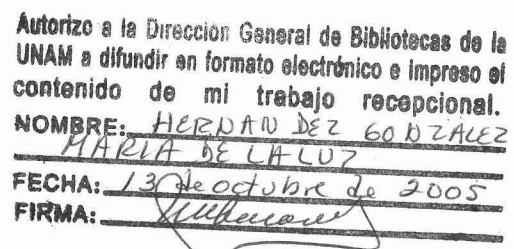 Autorizo a la Dirección General de Bibliotecas de la
UNAM a difundir en formato electrónico e impreso el
contenido de mi trabajo recepcional.
NOMBRE: HERNANDEZ GONZALEZ
MARIA DE LA LUZ
FECHA: 13 de octubre de 2005
FIRMA: